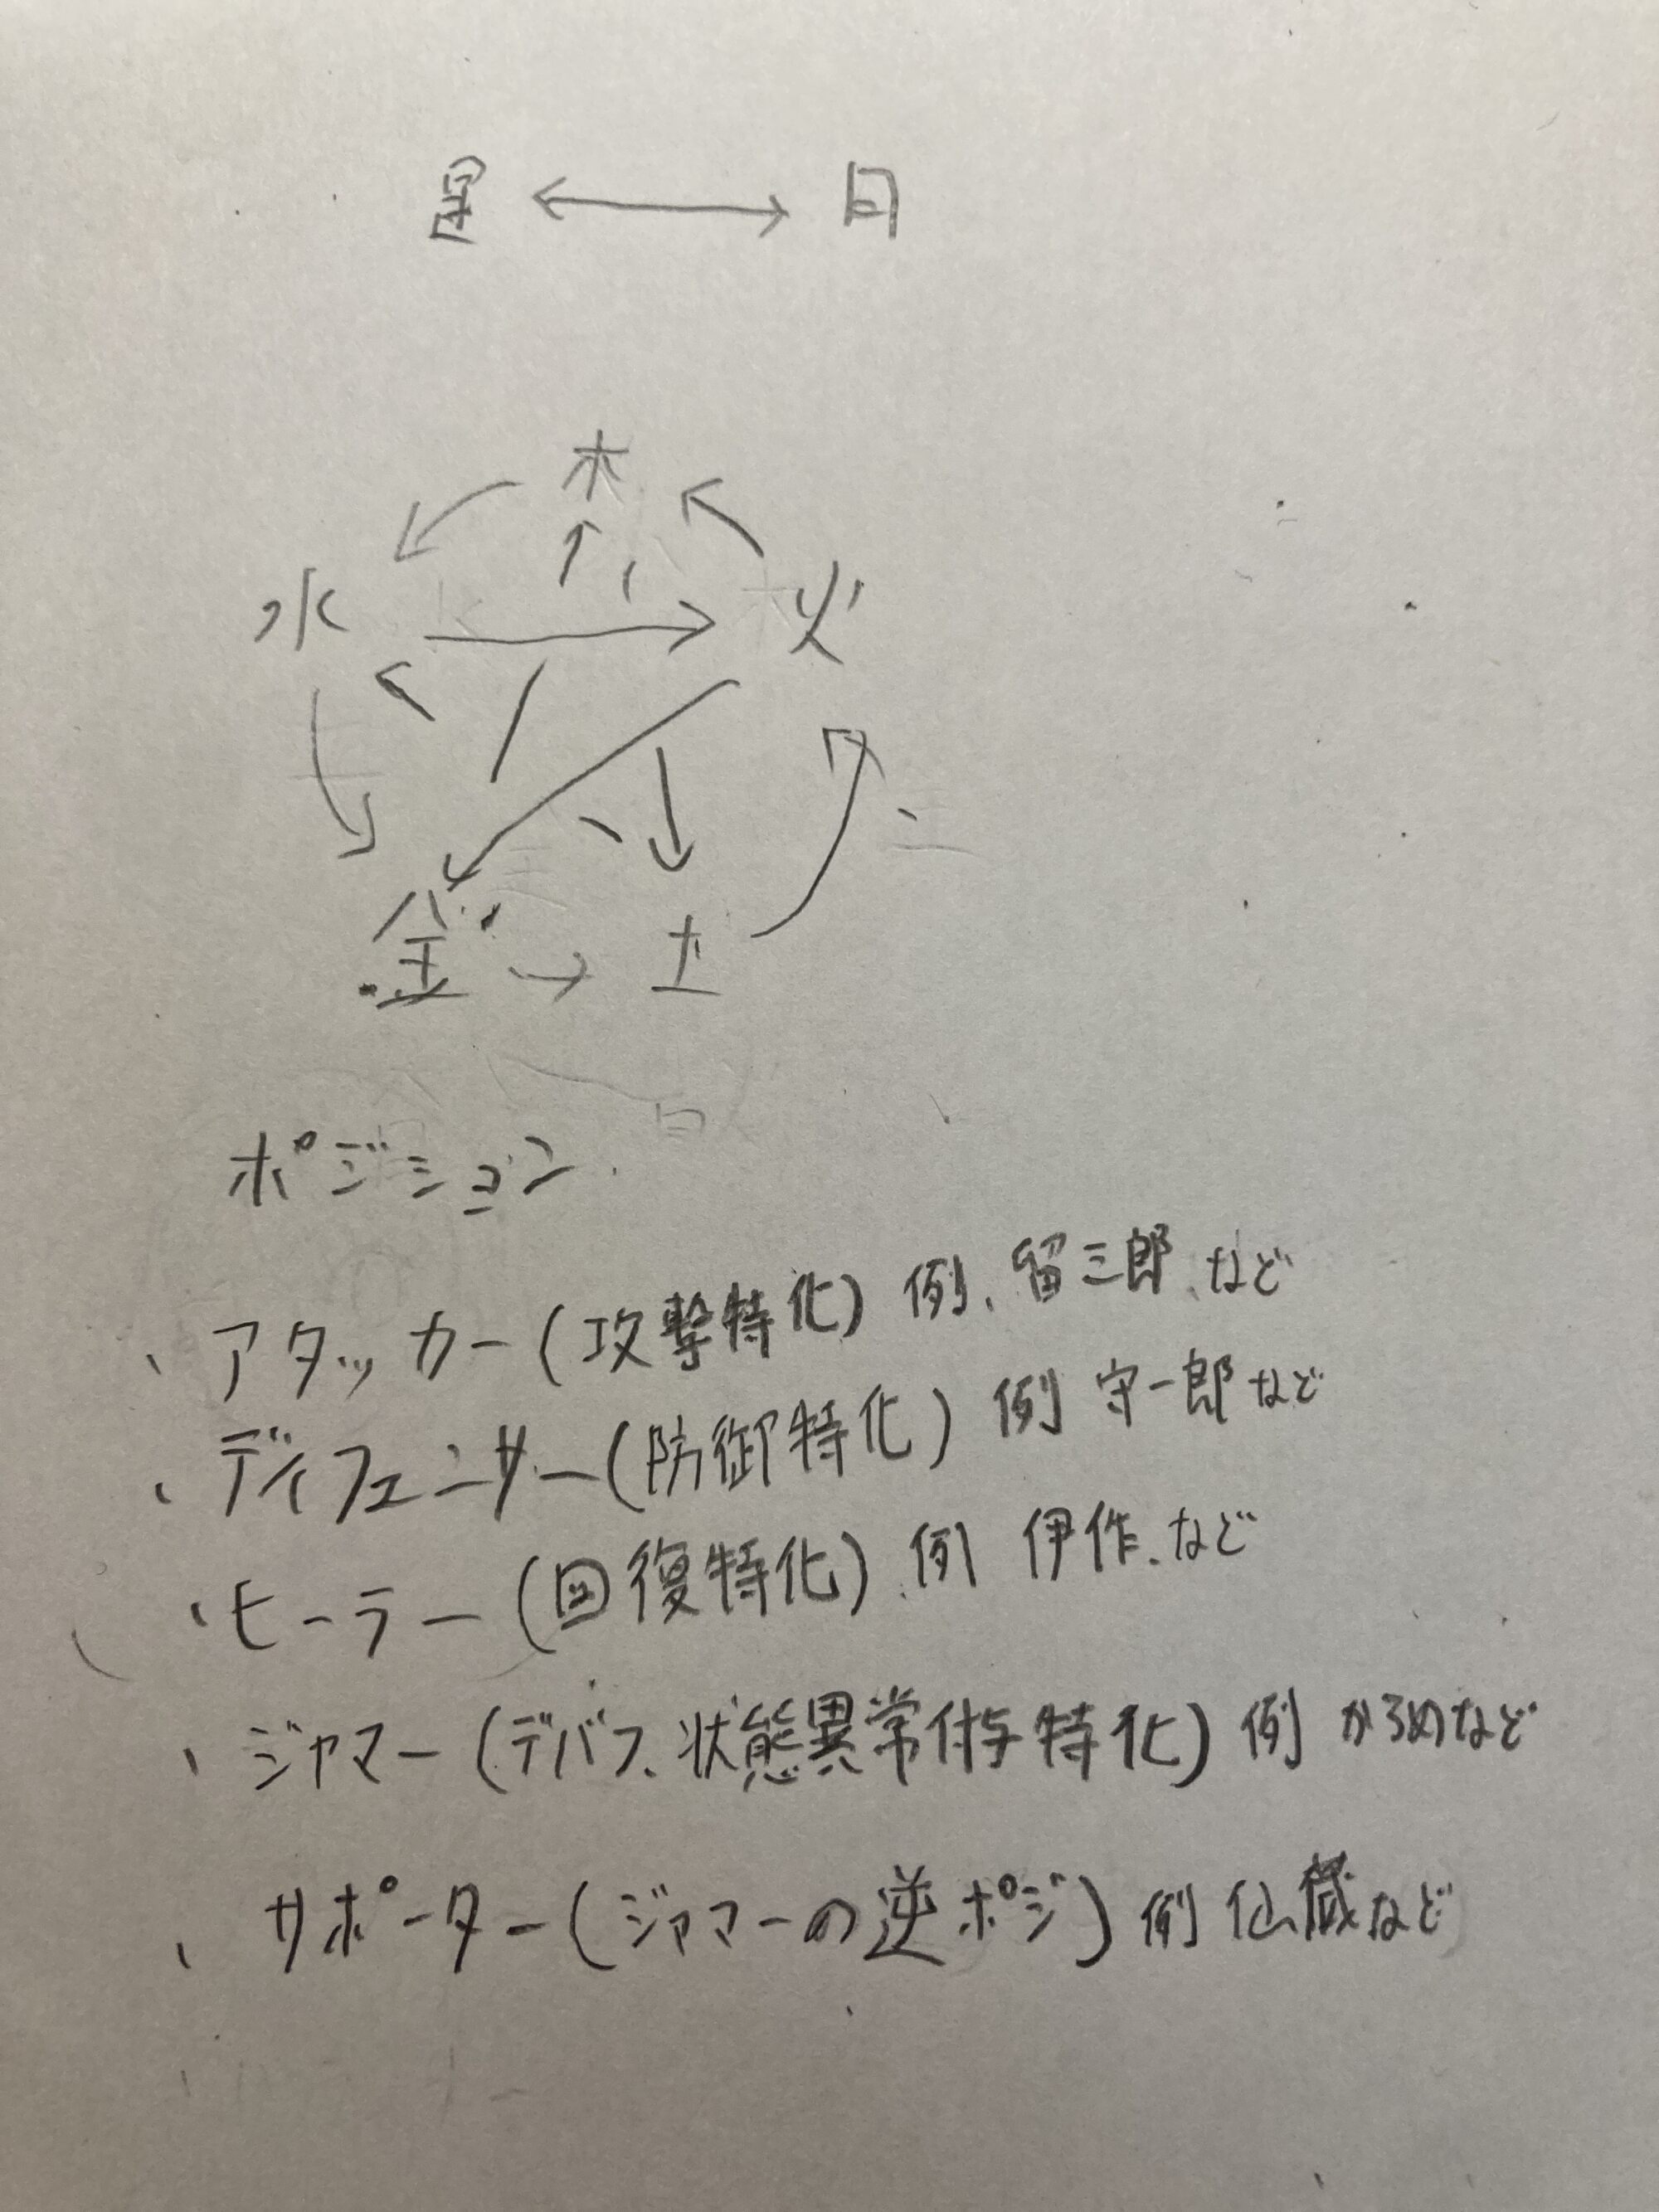 日
木
水 火
金 土
ポジション
・アタッカー(攻撃特化)例、留三郎、など
・ディフェンサー(防御特化)例 守一郎など
・ヒーラー(回復特化)例 伊作、など
・ジャマー(デバフ、状態異常付与特化)例 かろめなど
・サポーター(ジャマーの逆ポジ)例 仙蔵など